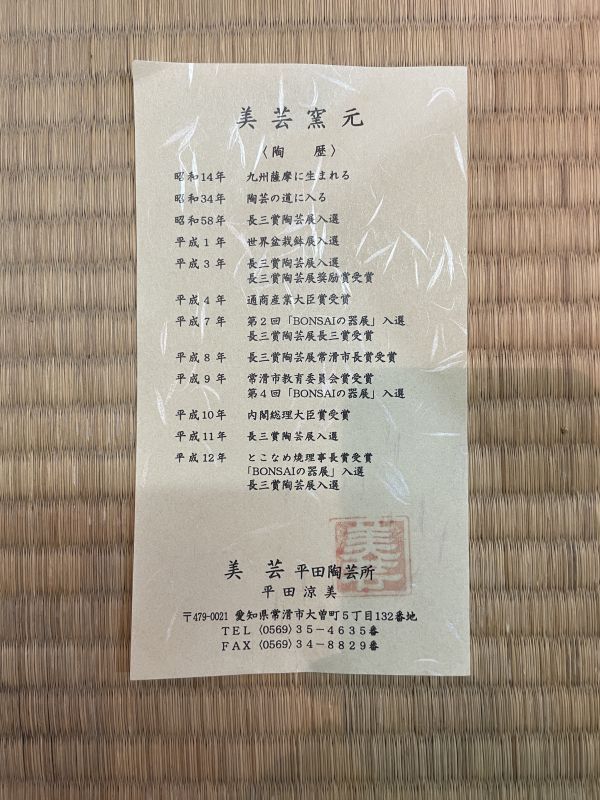 美芸窯元
〈陶　歴〉
昭和14年　九州薩摩に生まれる
昭和34年　陶芸の道に入る
昭和58年　長三賞陶芸展入選
平成１年　世界盆栽鉢展入選
平成３年　長三賞陶芸展入選
長三賞陶芸展奨励賞受賞
平成４年　通商産業大臣賞受賞
平成７年　第２回「BONSAIの器展」入選
長三賞陶芸展長三賞受賞
平成８年　長三賞陶芸展常滑市長賞受賞
平成９年　常滑市教育委員会賞受賞
第４回「BONSAIの器展」入選
平成10年　内閣総理大臣賞受賞
平成11年　長三賞陶芸展入選
平成12年　とこなめ焼理事長賞受賞
「BONSAIの器展」入選
長三賞陶芸展入選
美芸
美　芸　平田陶芸所
平田涼美
〒479-0021　愛知県常滑市大曽町５丁目132番地
ＴＥＬ〈0569〉３５－４６３５番
ＦＡＸ〈0569〉３４－８８２９番